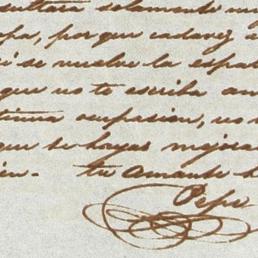 solamente
pa, por que cada vez
si se vuelve la espal
que no te escriba
tima ocupasion, no
que se hayas mejora
tu amante
Pepe